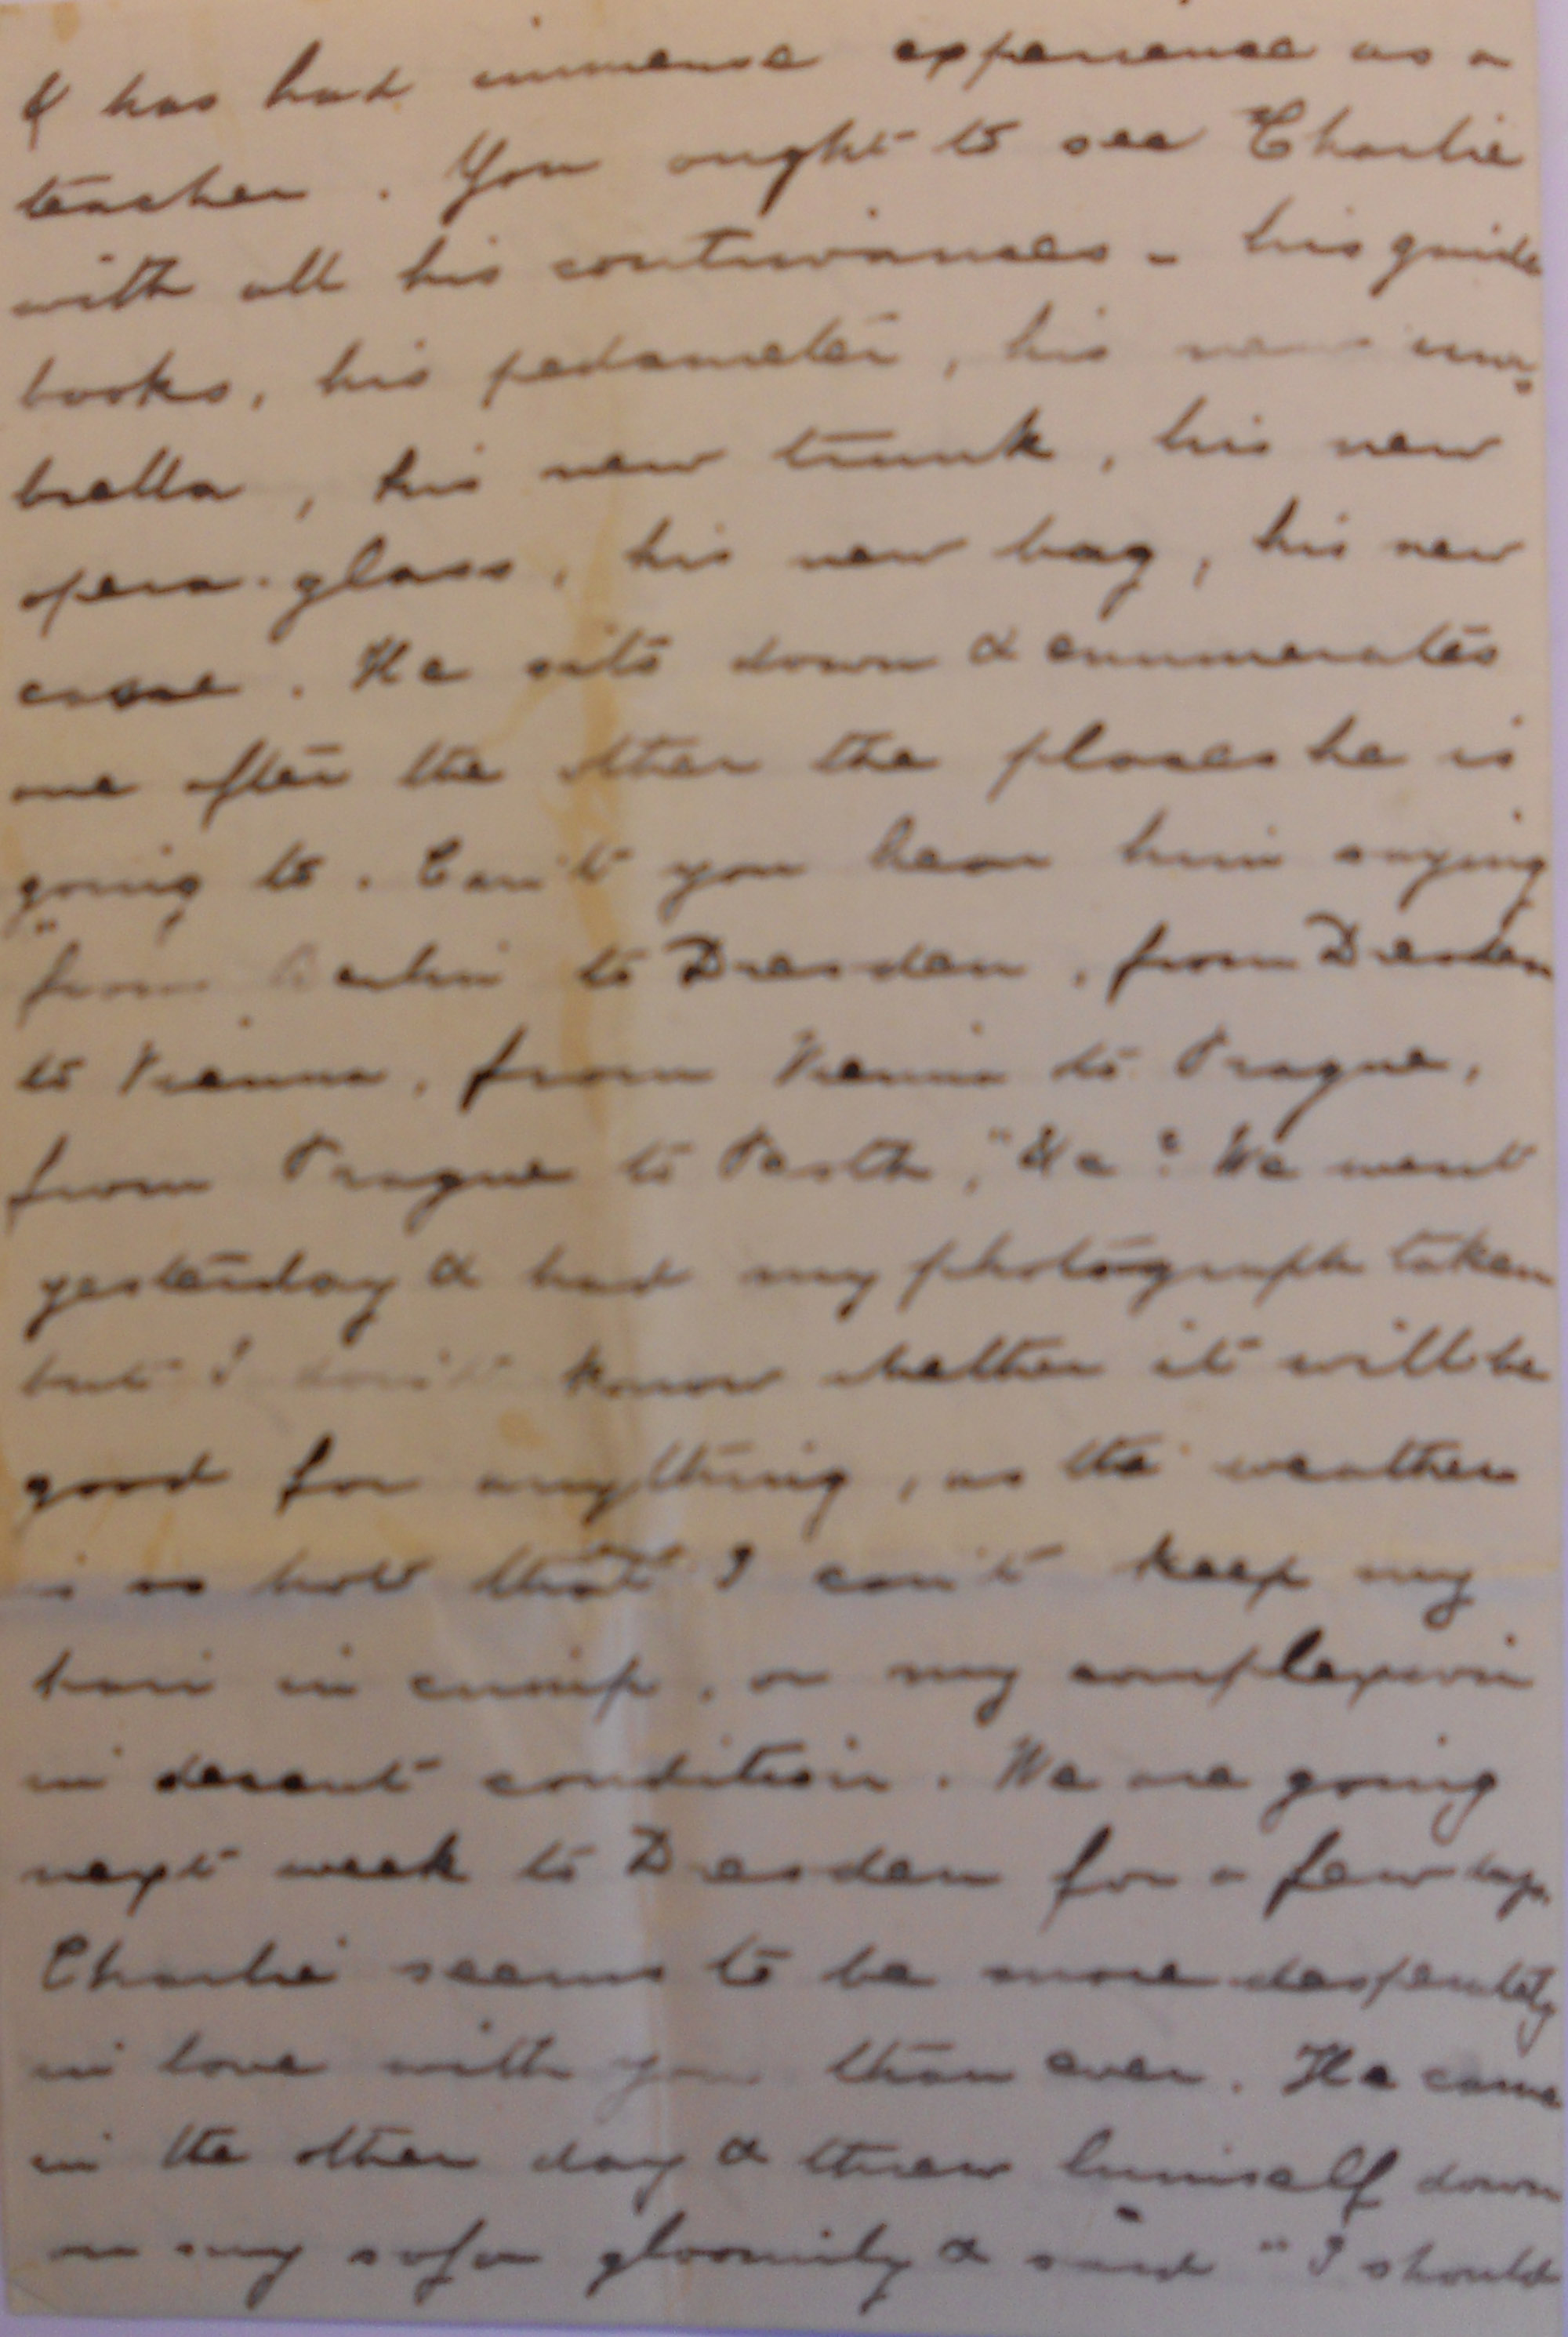 & has had immense experience as a
teacher. You ought to see Charlie
with all his contrivances - his guide
books, his pedometer, his new um-
brella, his new trunk, his new
opera-glass, his new bag, his new
cane. He sits down & enumerates
one after the other the places he is
going to. Can't you hear him saying
"from Berlin to Dresden, from Dresden
to Vienna, from Vienna to Prague,
from Prague to Pesth," &c? We went
yesterday & had my photograph taken
but I don't know whether it will be
good for anything, as the weather
is so hot that I can't keep my
hair in crimp, or my complexion
in decent condition. We are going
next week to Dresden for a few days.
Charlie seems to be more desperately
in love with you than ever. He came
in the other day & threw himself down
on my sofa gloomily & said "I should